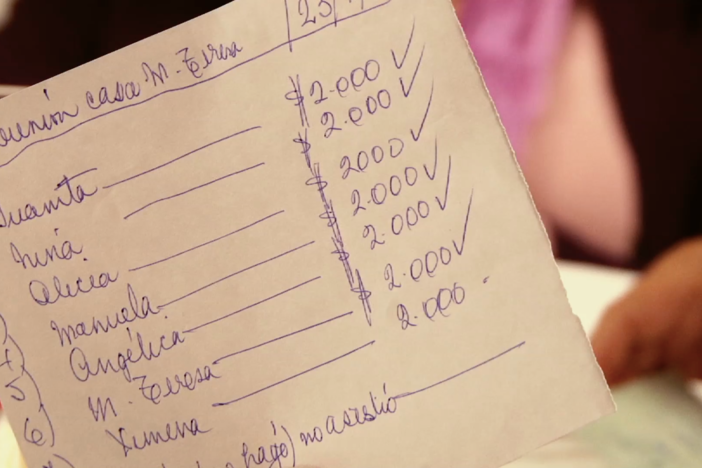 reunión casa M. Teresa 23/
Juanita $ 2.000 ✓
Nina $ 2.000 ✓
Alicia $ 2000 ✓
Manuela $ 2.000 ✓
Angélica $ 2.000 ✓
M. Teresa $ 2.000 ✓
6) Ximena 2.000
pagó) no asistió